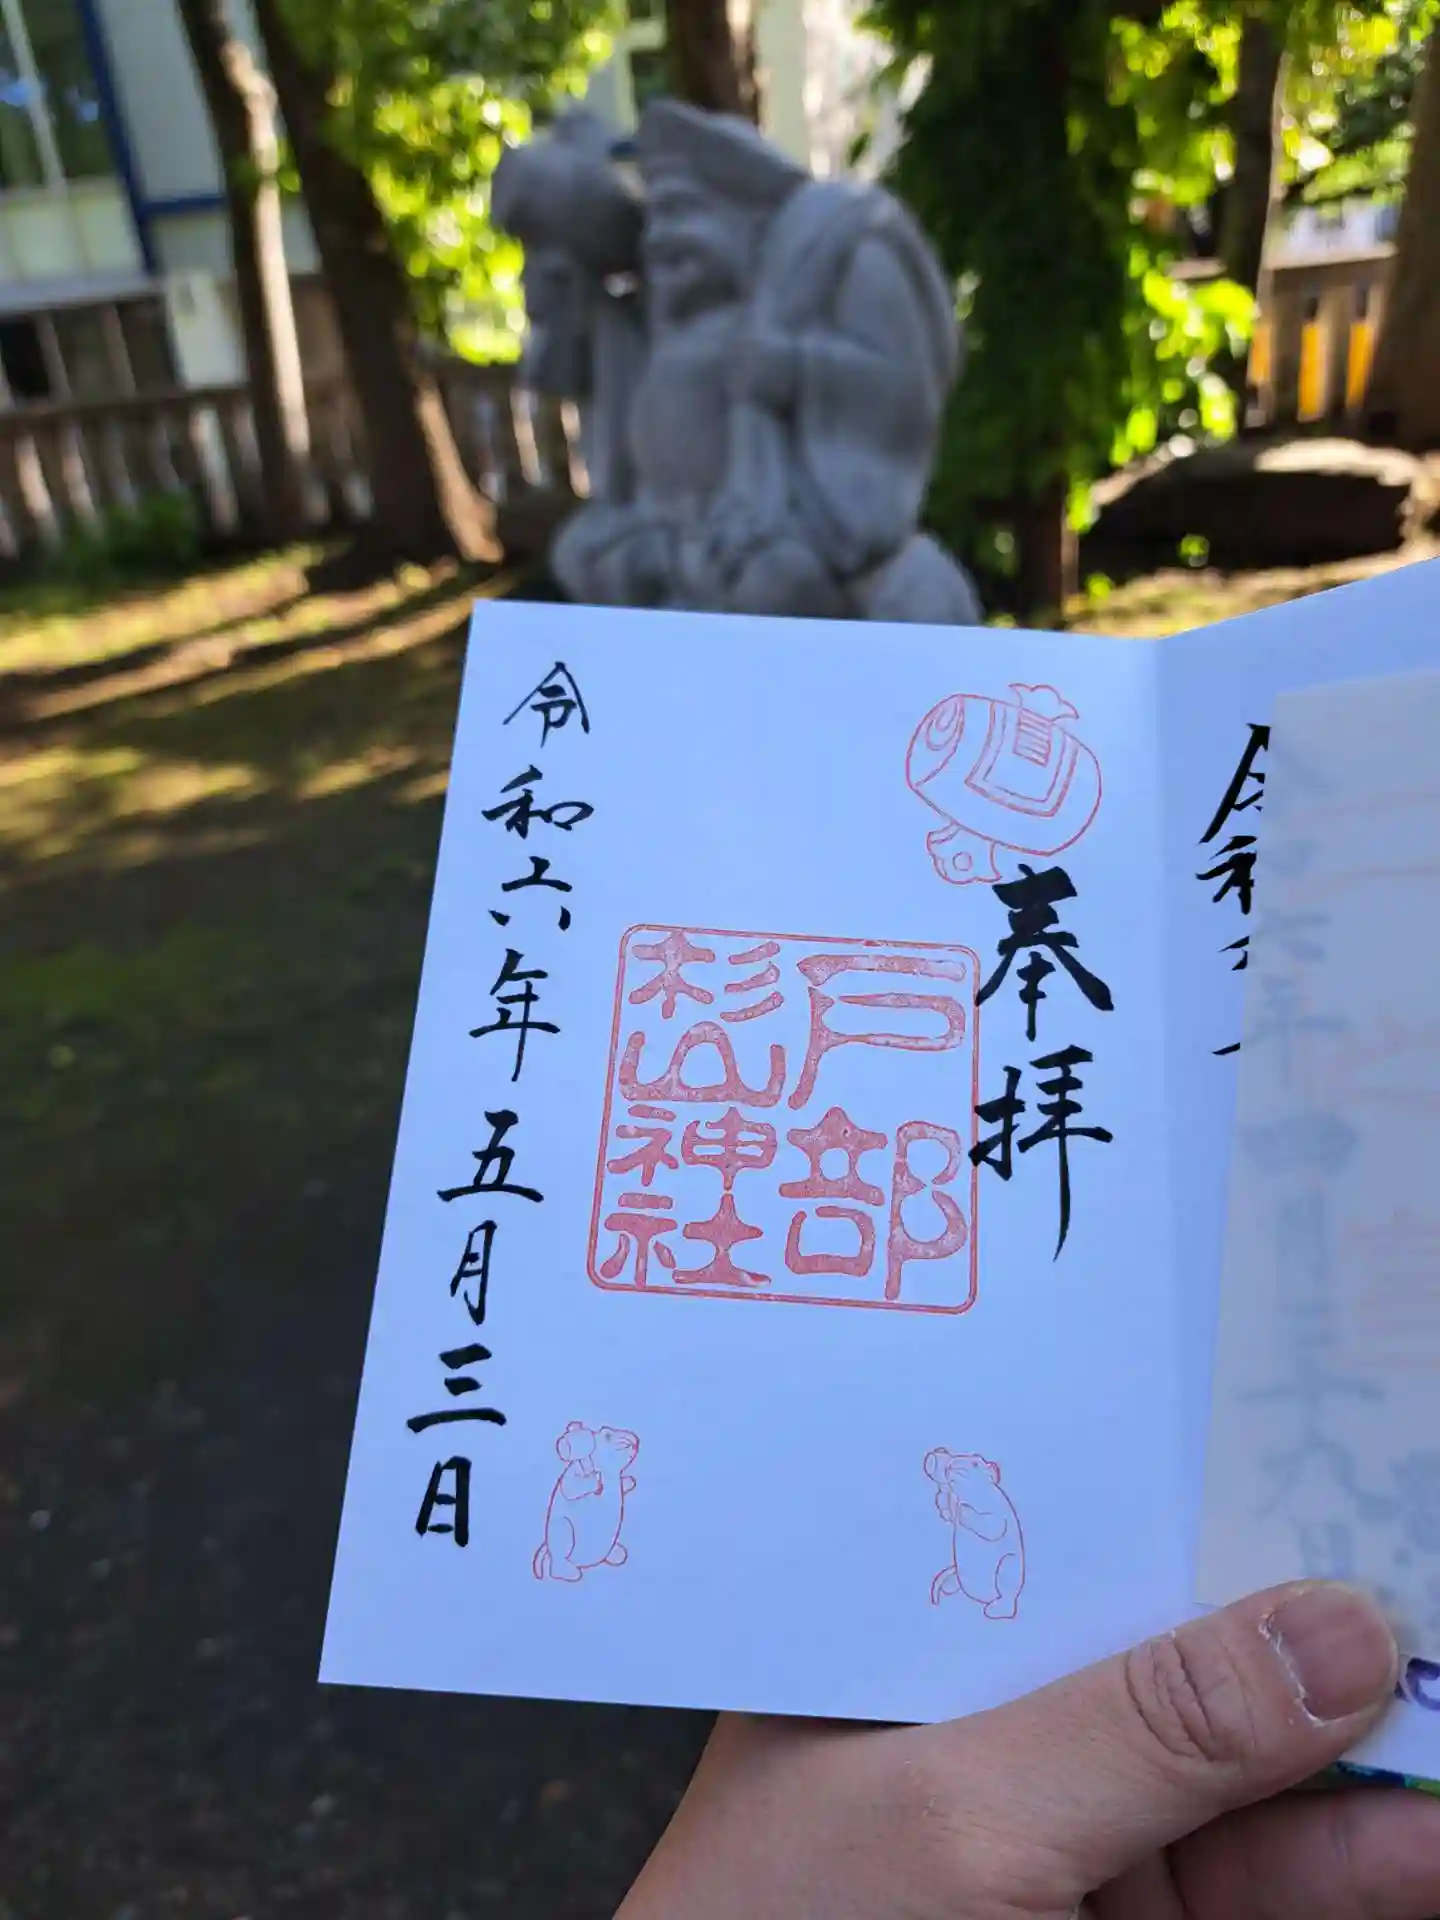 奉拝
戸部
杉山神社
令和六年五月三日
令和六